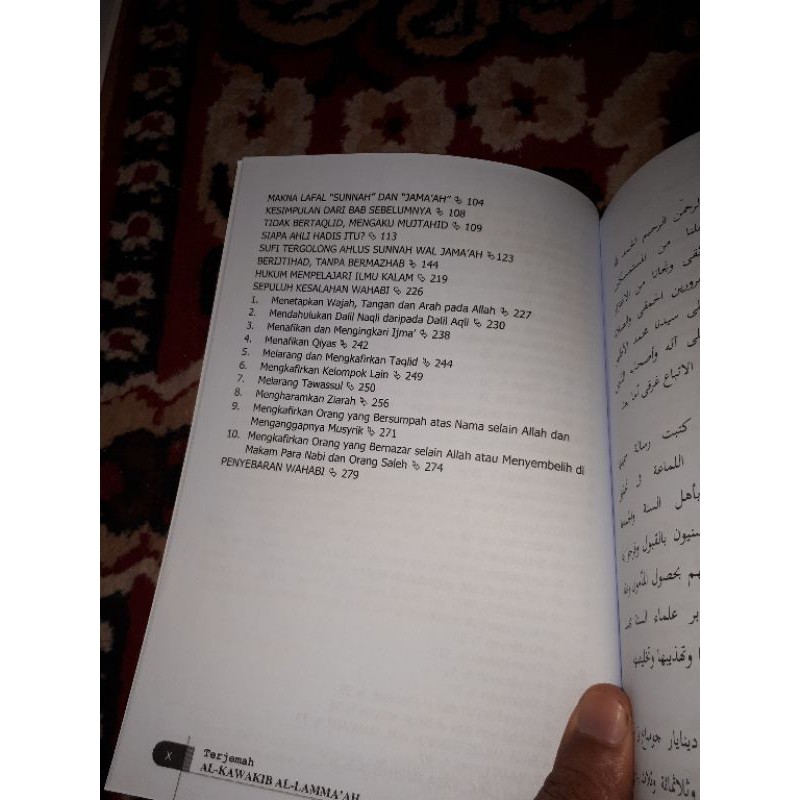 MAKNA LAFAL "SUNNAH" DAN "JAMA'AH" 104
KESIMPULAN DARI BAB SEBELUMNYA 108
TIDAK BERTAQLID, MENGAKU MUJTAHID 109
SIAPA AHLI HADIS ITU? 113
SUFI TERGOLONG AHLUS SUNNAH WAL JAMA'AH 123
BERIJTIHAD, TANPA BERMAZHAB 144
HUKUM MEMPELAJARI ILMU KALAM 219
SEPULUH KESALAHAN WAHABI 226
1. Menetapkan Wajah, Tangan dan Arah pada Allah 227
2. Mendahulukan Dalil Naqli daripada Dalil Aqli 230
3. Menafikan dan Mengingkari Ijma' 238
4. Menafikan Qiyas 242
5. Melarang dan Mengkafirkan Taqlid 244
6. Mengkafirkan Kelompok Lain 249
7. Melarang Tawassul 250
8. Mengharamkan Ziarah 256
9. Mengkafirkan Orang yang Bersumpah atas Nama selain Allah dan
Menganggapnya Musyrik 271
10. Mengkafirkan Orang yang Bernazar selain Allah atau Menyembelih di
Makam Para Nabi dan Orang Saleh 274
PENYEBARAN WAHABI 279
X
Terjemah
AL-KAWAKIB AL-LAMMA'AH
الرحيم الحمد
من
سيدنا محمد
آله وأصحابه
الاتباع
كتبت رسالة
اللماعة
بأهل السنة
بالقبول
بحصول
علماء
وتهذيبها
دينايار
وثلاثمائة